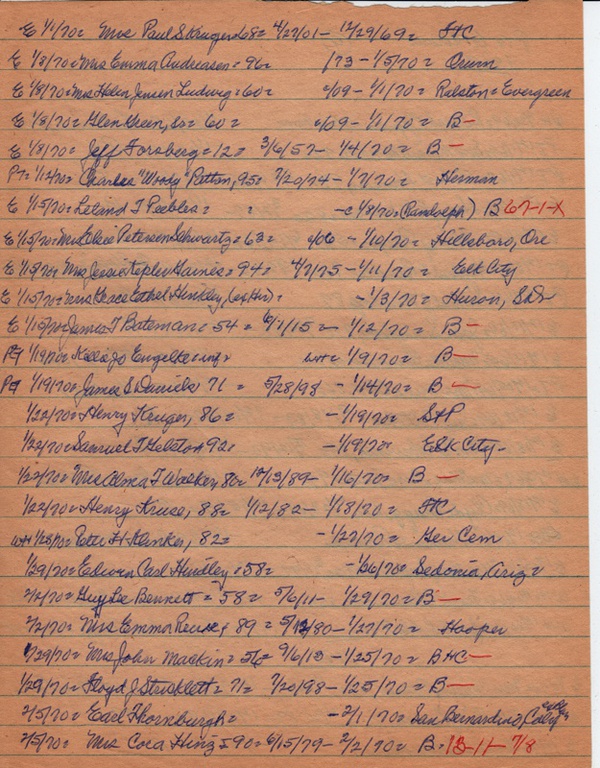 E 1/1/70= Mrs Paul S Kruger=68= 4/27/01- 12/29/69= FtC
E 1/8/70= Mrs Emma Andreasen= 96= 1/73 - 1/5/70= Orum
E 1/8/70= Mrs Helen Jensen Ludwig=60= c/09- 1/1/70= Ralston=Evergreen
E 1/8/70= Glen Green, Sr= 60= c/09- 1/1/70= B-
E 1/8/70= Jeff Forsberg=12= 3/6/57- 1/4/70= B-
PT= 1/12/70= Charles "Woody" Patton, 95= 7/20/74-1/7/70= Herman
E 1/15/70= Leland T Peebles= = -c 1/8/70=(Randolph) B 67-1-X
E 1/15/70= Mrs Elsie Petersen Schwartz= 63= c/06 - 1/10/70= Hillsboro, Ore
E 1/15/70= Mrs Jessie Tepler Gaines= 94= 4/2/75-1/11/70= Elk City
E 1/15/70= Mrs Grace Ethel Hinkley, = -1/3/70= Huron, SD=
E 1/15/70= James T Bateman= 54= 6/1/15- 1/12/70= B-
PT 1/19/70= Engelke=inf= 1/9/70= B-
PT 1/19/70= James S Daniels, 71= 5/28/98 -1/14/70= B-
1/22/70= Henry Kruger, 86= -1/19/70= StP
1/22/70= Samuel T Helston 92= -1/19/70= Elk City-
1/22/70= Mrs Alma T Walker, 80= 10/13/89- 1/16/70= B-
1/22/70= Henry Kruse, 88= 1/12/82- 1/18/70= FtC
1/28/70= H Klinker, 82= -1/27/70= Ger Cem
1/29/70= Edwin Carl Hindley=58= -1/26/70= Sedonia, Ariz=
2/2/70= Guy Lee Bennett= 58= 5/6/11- 1/29/70= B-
2/2/70= Mrs Emma , 89= 5/12/80- 1/27/70= Hooper
1/29/70= Mrs John Mackin= 56= 9/6/13 -1/25/70= BHC-
1/29/70= Floyd J Stricklett= 71= 7/20/98-1/25/70= B-
2/5/70= Earl Thornburgh= -2/1/70= San Bernardino, Calif=
2/5/70= Mrs Cora Hinz=90= 6/15/79- 2/2/70= B= 13-11-7/8